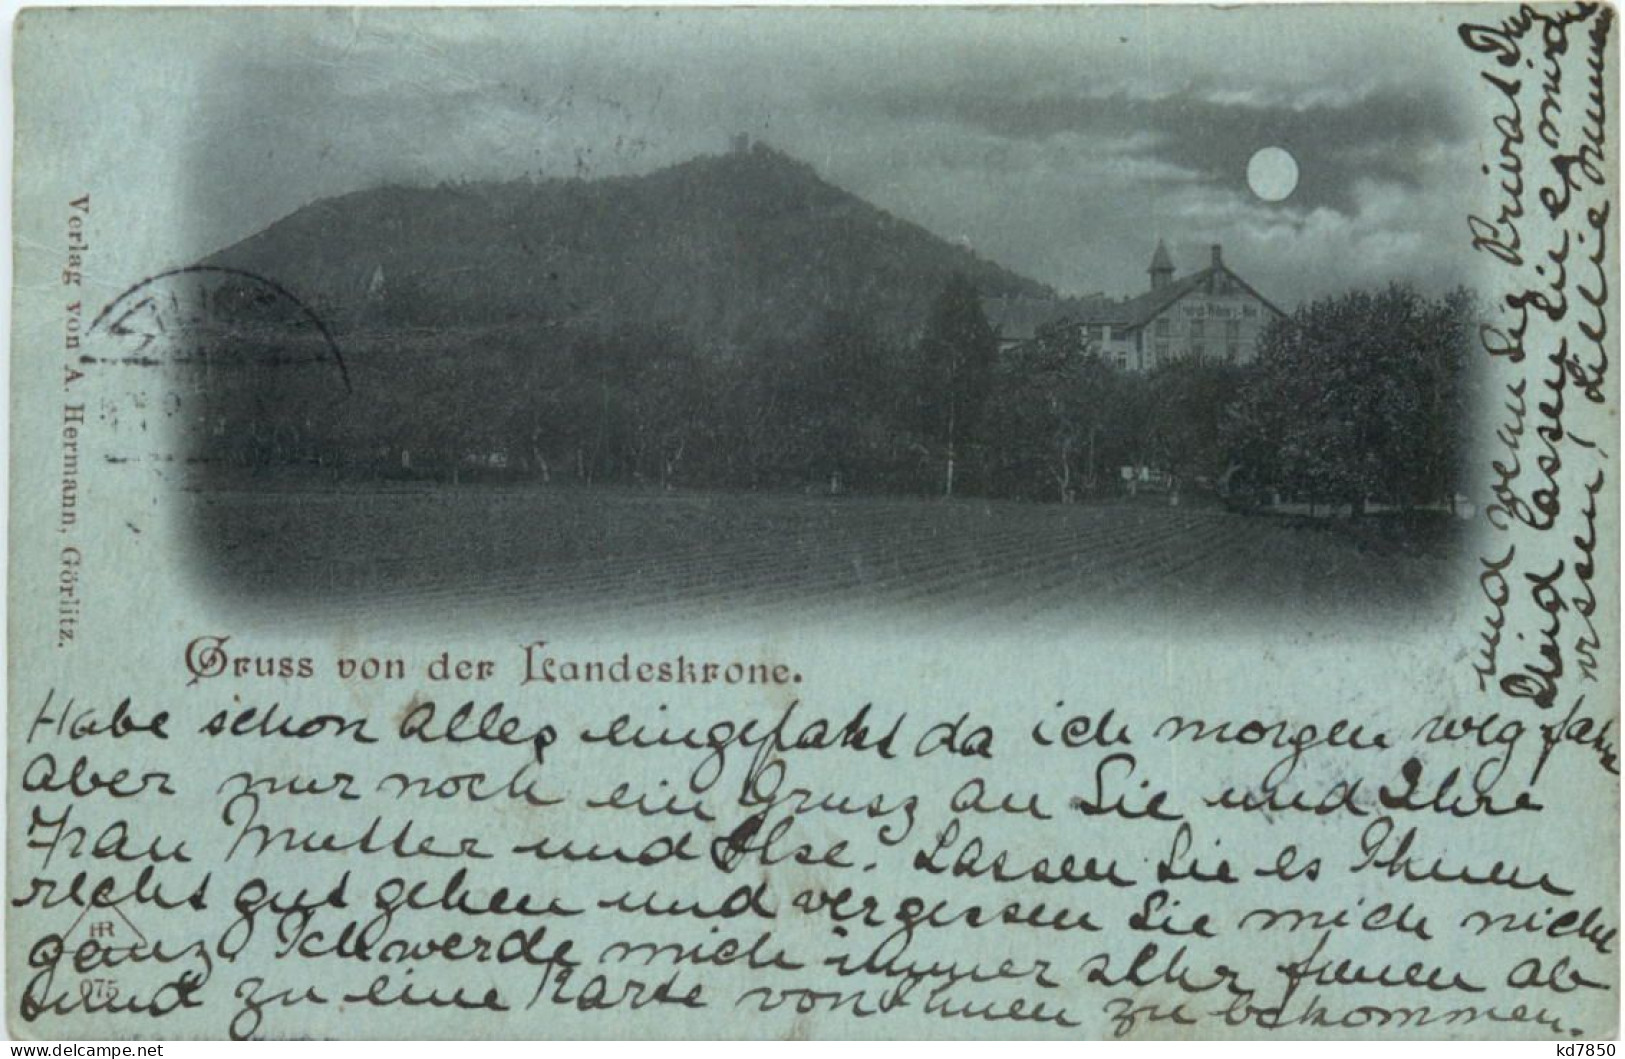 Verlag von A. Hermann, Görlitz.
Gruss von der Landeskrone.
Habe schon alles eingepakt da ich morgen weg fahre
aber nur noch ein Grusz an Sie und Ihre
Frau Mutter und Else. Lassen Sie es Ihnen
recht gut gehen und vergessen Sie mich nicht
ganz. Ich werde mich immer sehr freuen ab
und zu eine Karte von Ihnen zu bekommen.
und wenn Sie Privat
sind lassen Sie es mir
wissen, Lillie
HR
075
kd7850